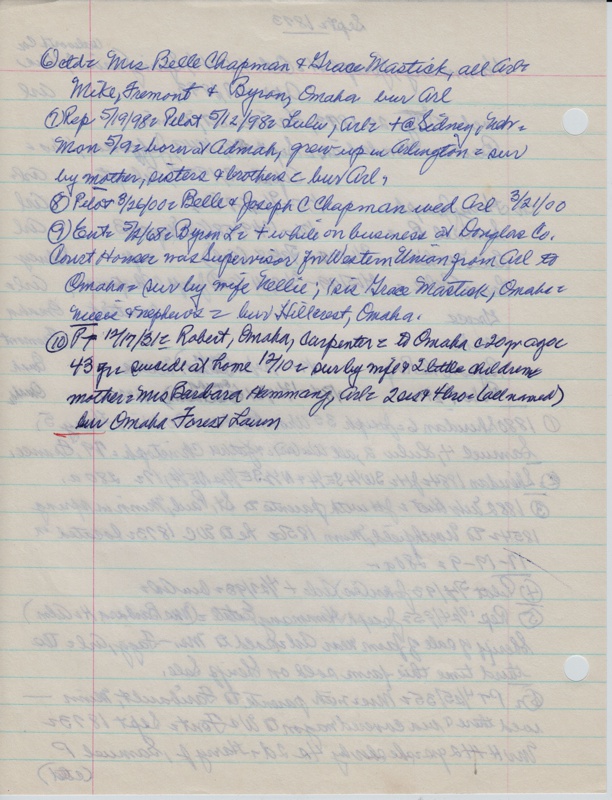 (ctd= Mrs Belle Chapman & Grace Mastick, all Arl=
Mike, Fremont & Byron, Omaha bur Arl
(7) Rep 5/19/98= Pilot 5/12/98= Lulu, Arl= + @ Sidney, Nebr=
Mon 5/9= born at Admah, grew up in Arlington= sur
by mother, sisters & brothers= bur Arl,
(8) Pilot 3/26/00= Belle & Joseph C Chapman wed Arl 3/21/00
(9) Ent= 5/2/68= Byron L= + while on business at Douglas Co.
Court House= was Supervisor for Western Union from Arl to
Omaha= sur by wife Nellie; sis Grace Mastick, Omaha=
nieces & nephews= bur Hillcrest, Omaha.
(10) 12/17/31= Robert, Omaha, carpenter= to Omaha c20yr ago=
43 yr= suicide at home 12/10= sur by wife & 2 little children=
mother= Mrs Barbara Hammang, Arl= 2 sis & 4 bro= (all named)
bur Omaha Forest Lawn